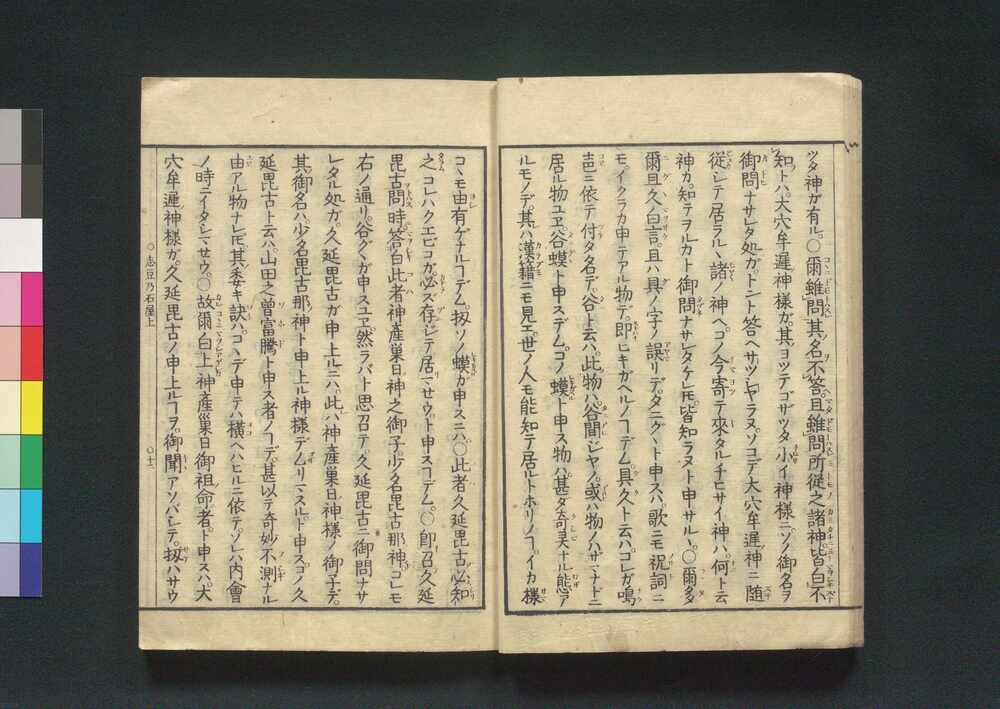 ツタ神ガ有ル。〇爾雖問其名不答。且雖問所從之諸神皆白不
知トハ大穴牟遲神樣ガ。其ヨツテゴザツタ小イ神樣ニ。ソノ御名ヲ
御問ナサレタ処ガ。トント答ヘサツシヤラヌ。ソコデ大穴牟遲神ニ随
從シテ居ラルヽ諸ノ神ヘ。コノ今寄テ來タルチヒサイ神ハ。何ト云
神カ。知テヲルカト御問ナサレタケレ𪜈。皆知ラヌト申サル。〇爾多
爾且久白言。且ハ具ノ字ノ誤リデ。タニグヽト申スハ。歌ニモ祝詞ニ
モ。イクラカ申テアル物デ。即ヒキガヘルノヿデム。具久ト云ハ。コレガ鳴
声ニ依テ付タ名デ。谷ト云ハ。此物ハ。谷間ジヤノ。或ハ物ノハザマナドニ
居ル物ユヱ。谷蟆ト申スデム。コノ蟆ト申ス物ハ。甚タ奇灵ナル態ア
ルモノデ。其ハ漢籍ニモ見エ。世ノ人モ能知テ居ルトホリノヿ。イカ樣
コヽモ由有ゲナルヿデム。扨ソノ蟆ガ申スニハ。〇此者久延毘古必知
之。コレハクエビコガ。必ズ存ジテ居マセウ。ト申スヿデム。〇即召久延
毘古問時。答白此者神產巢日神之御子。少名毘古那神。コレモ
右ノ通リ。谷グヽガ申スユヱ。然ラバト思召テ。久延毘古ニ御問ナサ
レタル処ガ。久延毘古ガ申上ルニハ。此ハ神產巢日神樣ノ御子デ。
其御名ハ。少名毘古那神ト申上ル神樣デムリマスル。ト申スヿ。久
延毘古ト云ハ。山田之曾富騰ト申ス者ノヿデ。甚以テ奇妙不測ナル
由アル物ナレ𪜈。其委キ訣ハ。コヽデ申テハ。橫ヘハヒルニ依テ。ソレハ内會
ノ時ニイタシマセウ。〇故爾白上神產巢日御祖命者。ト申スハ。大
穴牟遲神樣ガ。久延毘古ノ申上ルヿヲ。御聞アソバシテ。扨ハサウ
〇志豆乃石屋上
〇十二